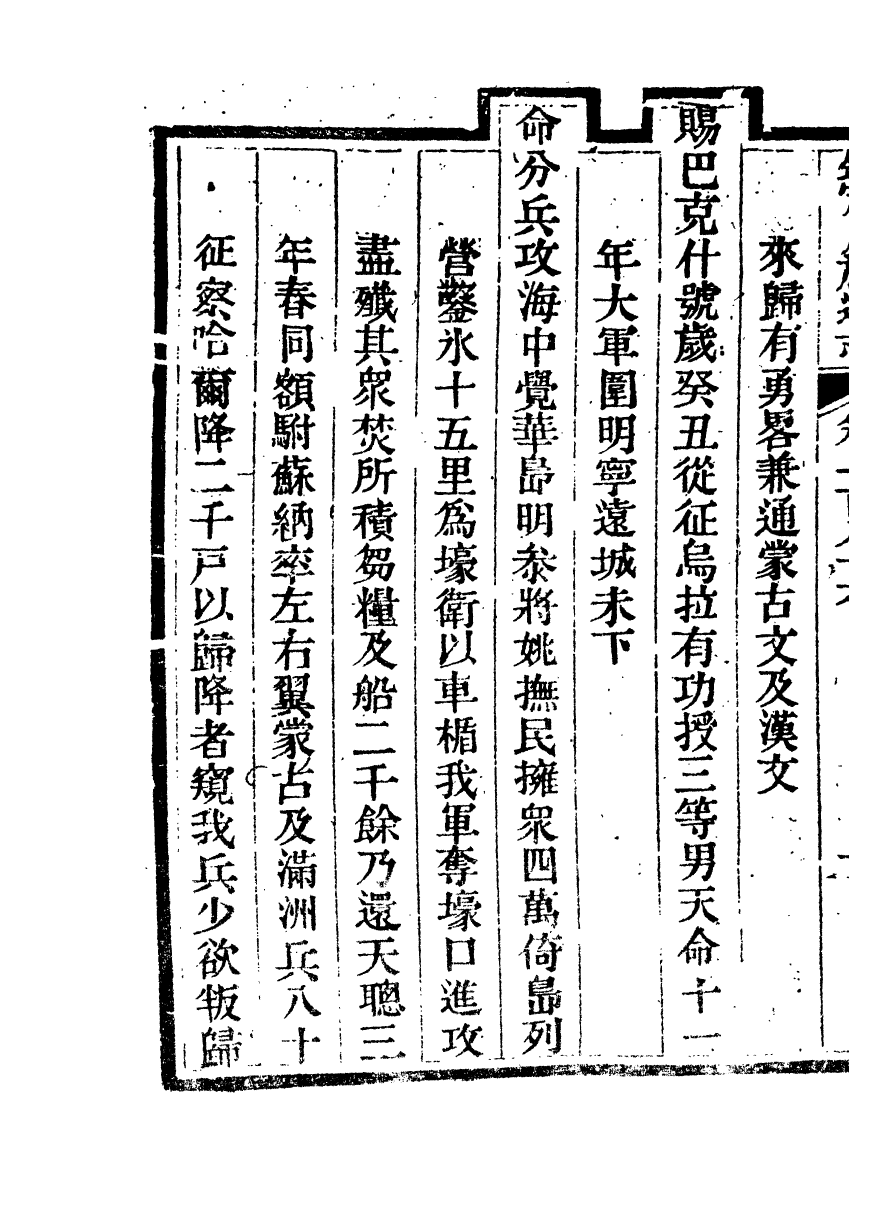 來歸有勇畧兼通蒙古文及漢文
賜巴克什號歲癸丑從征烏拉有功授三等男天命十一
年大軍圍明寧遠城未下
命分兵攻海中覺華島明叅將姚撫民擁衆四萬倚島列
營鑿氷十五里爲壕衛以車楯我軍奪壕口進攻
盡殲其衆焚所積芻糧及船二千餘乃還天聰三
年春同額駙蘇納率左右翼蒙古及滿洲兵八十
征察哈爾降二千戸以歸降者窺我兵少欲叛歸